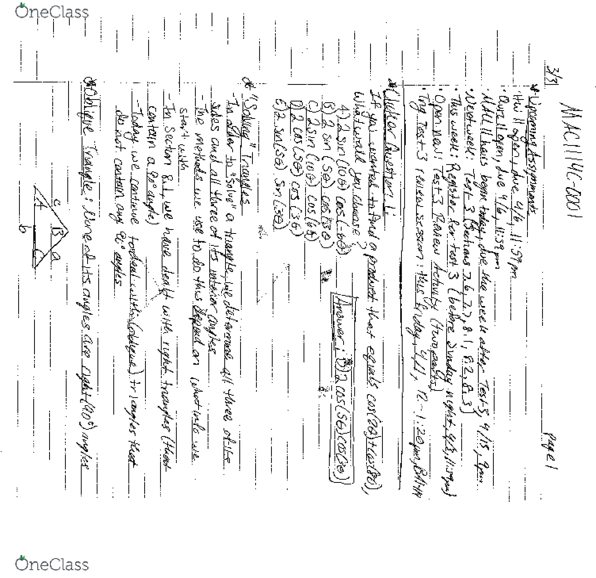 OneClass
3/31
MAC1114C-0001
page 1
*Upcoming Assignments
Hw 11 open, due 4/6, 11:59pm
Quiz 11 open, due 4/6, 11:59pm
MALL 11 hours begin today, due the week after Test 3, 4/15, 9pm
Next week: Test 3 (Sections 7.6, 7.7, 8.1, 8.2, 8.3)
This week: Register for test 3 (before Sunday night, 4/3, 11:59pm)
Open now: Test 3 Review Activity (two parts)
Test 3 review session this Friday, 4/1, 12-1:20pm,
*Clicker Question 1:
If you wanted to find a product that equals cos(2θ)+cos(8θ),
what would you choose?
A) 2 sin(10θ) cos(-6θ)
B) 2 sin(5θ) cos(3θ)
C) 2 sin(10θ) cos(6θ)
D) 2 cos(5θ) cos(3θ)
E) 2 sin(5θ) sin(3θ)
Answer: D) 2 cos(5θ) cos(3θ)
* "Solving" Triangles
-In order to "solve" a triangle, we determine all three of its
sides and all three of its interior angles
-The methods we use to do this depend on what info we
start with
-In section 8.1, we have dealt with right triangles (that
contain a 90° angle)
-Today we continue to deal with (oblique) triangles that
do not contain any 90° angles
*Oblique Triangle: None of its angles are right (90°) angles
c
B
a
A
C
b
OneClass